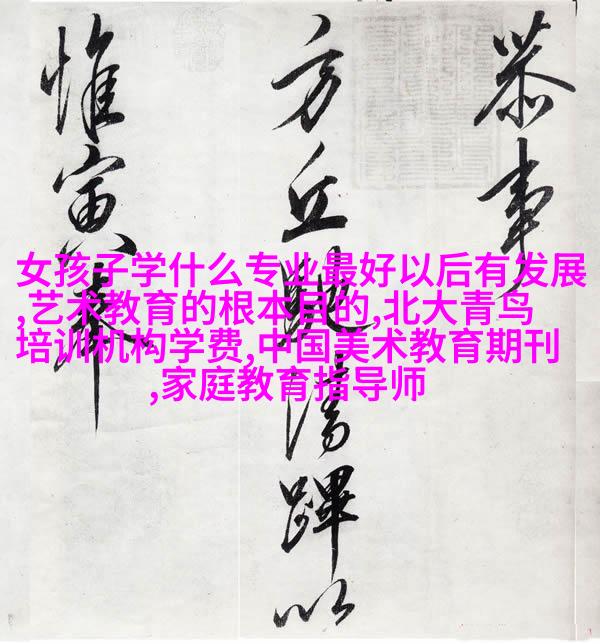 恭事
方丘蹕以
惟寅奉
女孩子学什么专业最好以后有发展
,艺术教育的根本目的,北大青鸟
培训机构学费,中国美术教育期刊
,家庭教育指导师